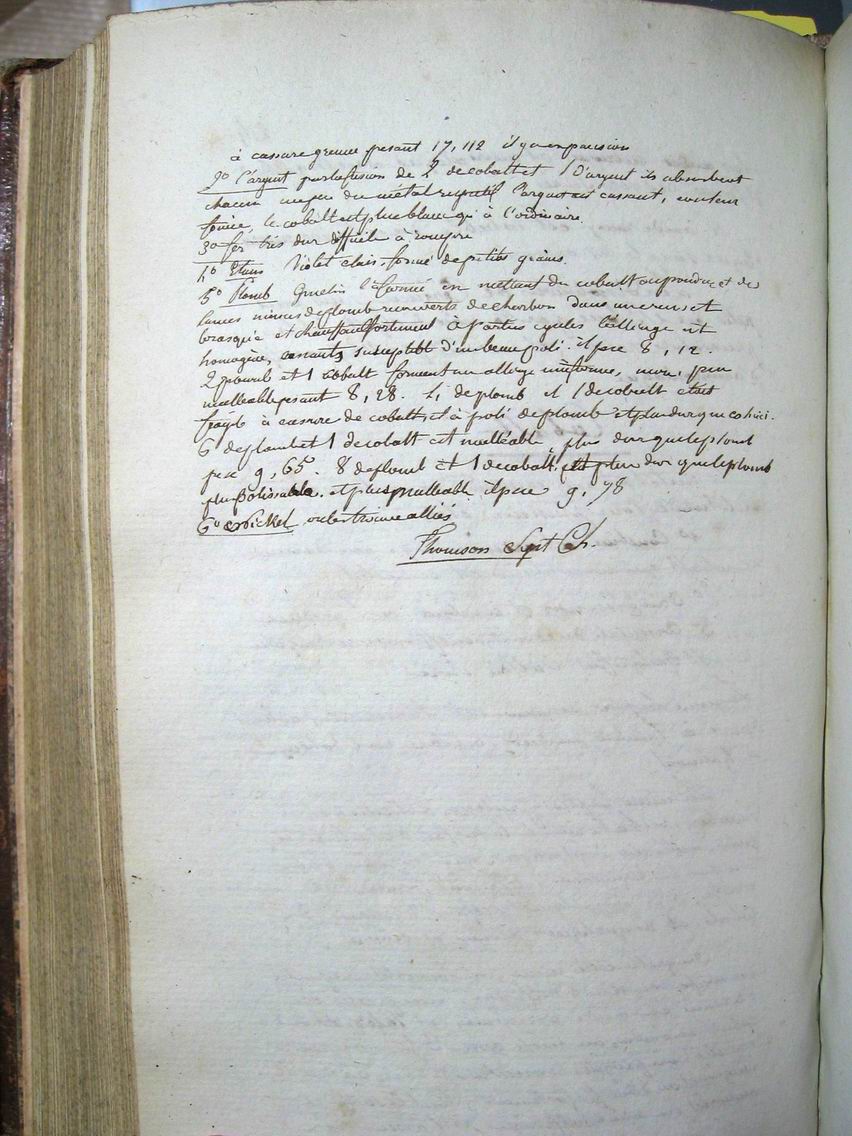 à cassure grenue pesant 17,112 il y a expansion
2º L'argent par la fusion de 2 de cobalt et 1 d'argent ils absorbent
chacun un peu du métal respectif l'argent est cassant, couleur
foncée, le cobalt est plus blanc qu'à l'ordinaire.
3º fer très dur difficile à rompre
4º Etain Violet clair, formé de petits grains.
5º Plomb Gmelin l'a formé en mettant du cobalt en poudre et des
lames minces de plomb recouverts de charbon dans un creuset
brasqué et chauffant fortement à parties égales l'alliage est
homogène, cassant, susceptible d'un beau poli. il pese 8,12.
2 plomb et 1 cobalt forment un alliage uniforme, un peu
malleable pesant 8,28. 4 de plomb et 1 de cobalt était
fragile à cassure de cobalt, et à poli de plomb et plus dur que
6 de plomb et 1 de cobalt est malléable, plus dur que le plomb
pese 9,65. 8 de plomb et 1 de cobalt, est plus dur que le plomb
plus polissable et plus malleable il pese 9,78
6º Nickel on les trouve alliés
Thomson Syst Ch.